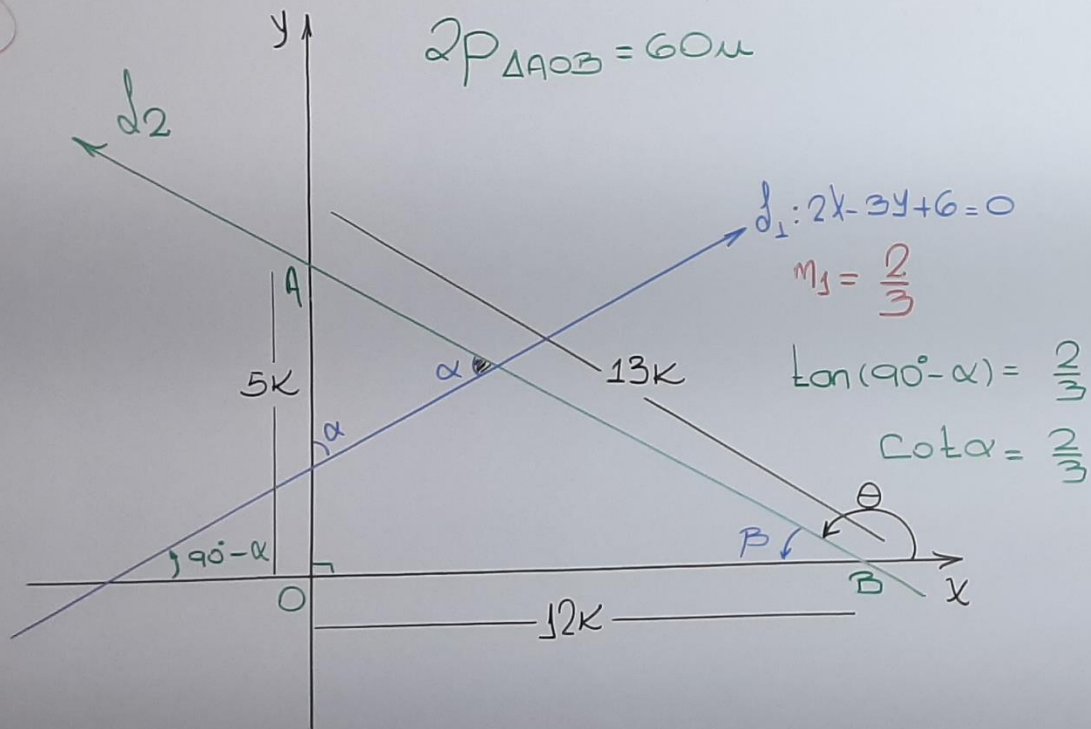 y
2p△AOB = 60u
L2
L1: 2x-3y+6=0
A
m1 = 2/3
α
5k
13k
tan(90°-α) = 2/3
α
Cotα = 2/3
θ
β
90°-α
O
B
x
12k